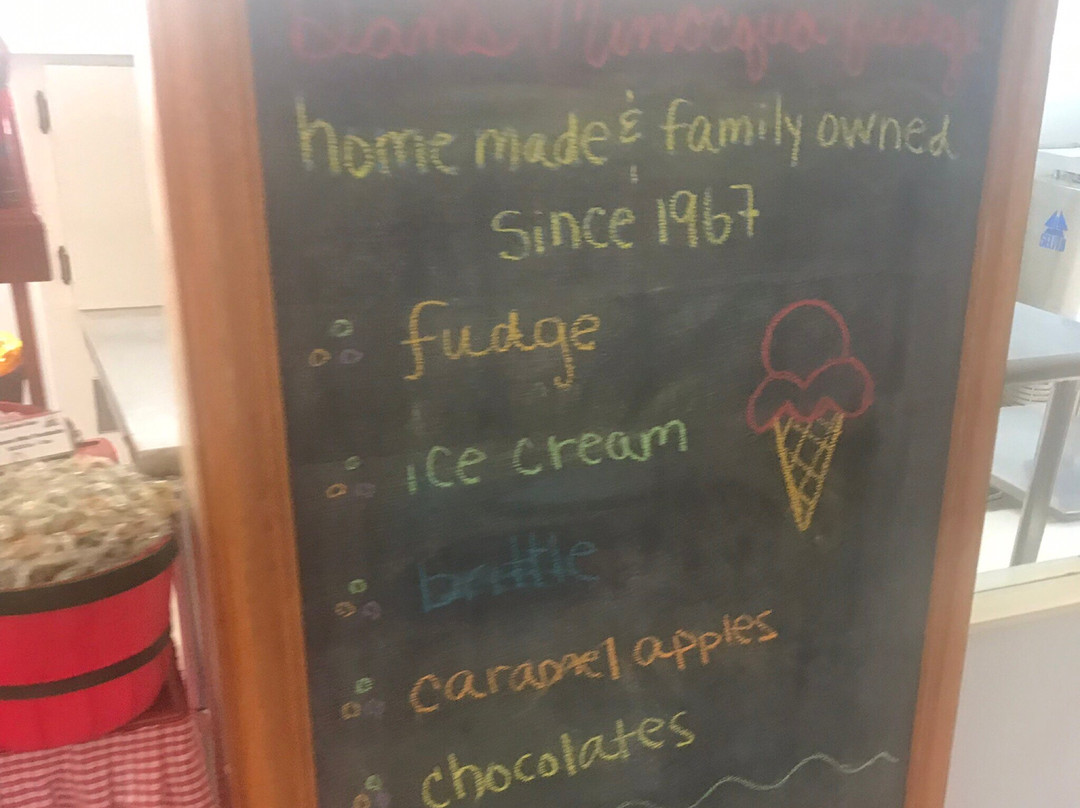 Dan's Minocqua fudge
home made & family owned
since 1967
fudge
ice cream
brittle
caramel apples
chocolates